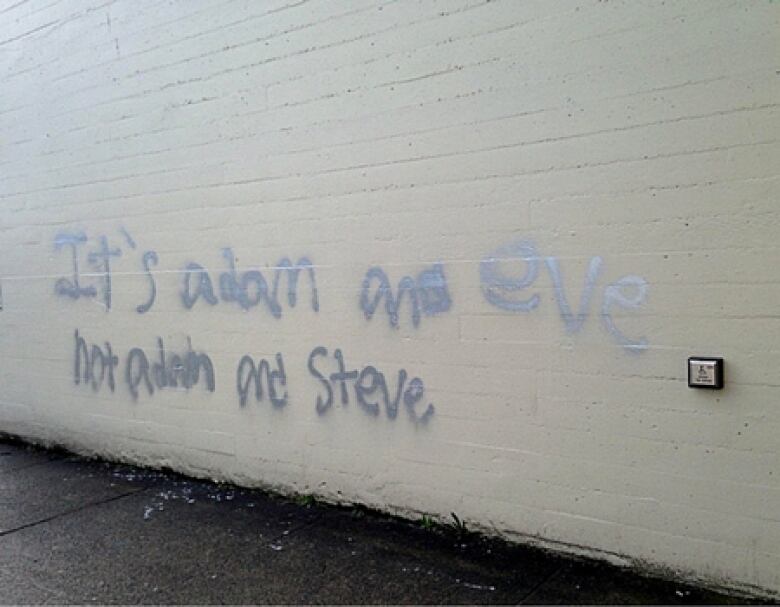 It's adam and eve
not adam and Steve